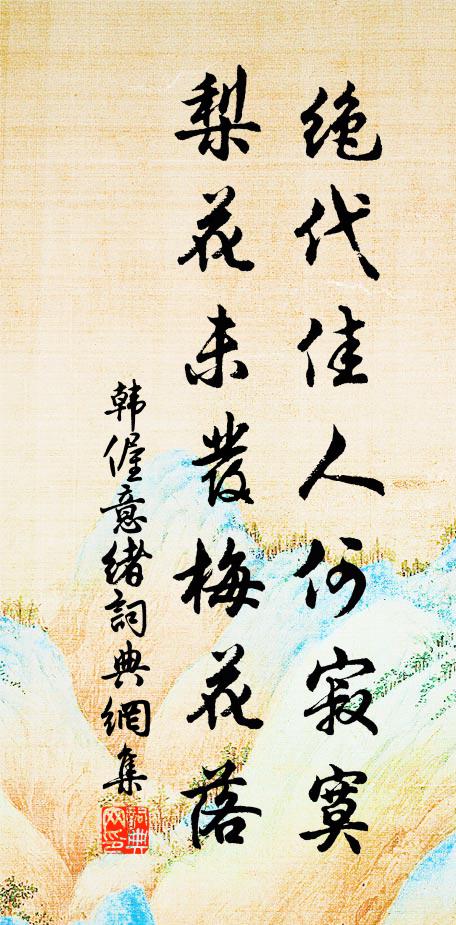 绝代佳人何寂寞
梨花未發梅花落
韩偓意绪詞典網集
詞典